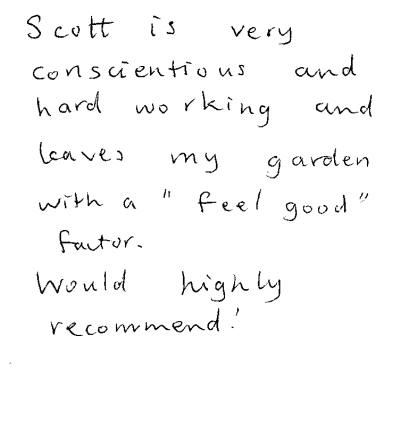 Scott is very
conscientious and
hard working and
leaves my garden
with a "feel good"
factor.
Would highly
recommend!